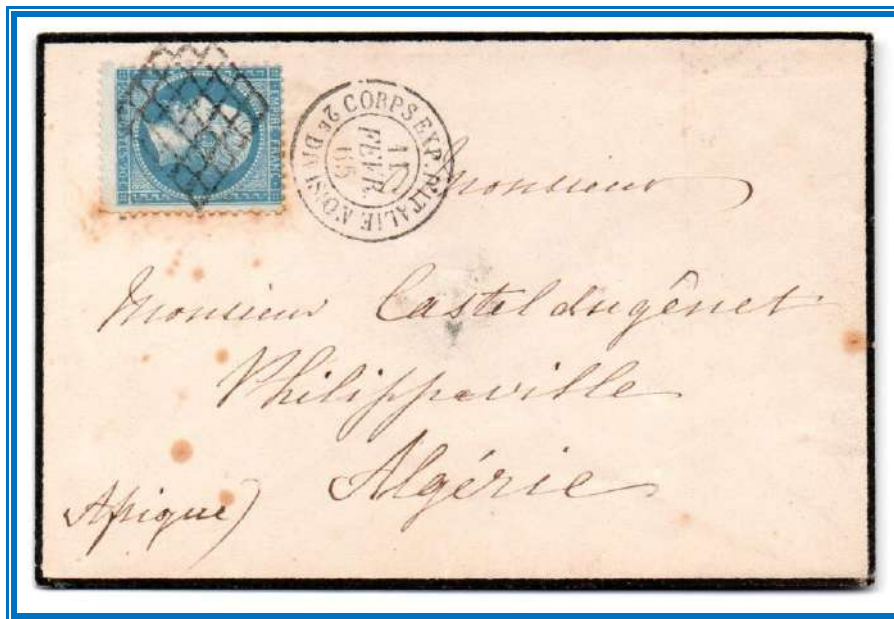 EMPIRE FRANC.
CORPS EXP. D'ITALIE
2E DIVISION
11
FEVR.
65
Monsieur
Monsieur Casteldugênet
Philippeville
Algérie
Afrique)